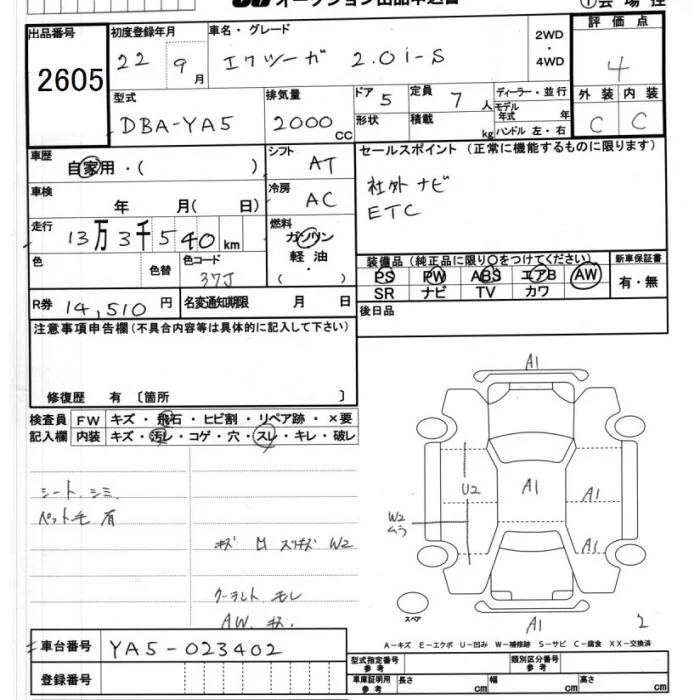 オークション出品申込書
①会場控
出品番号
2605
初度登録年月
22 9月
車名・グレード
エクシーガ 2.0i-S
2WD
・
4WD
評価点
4
外装 内装
C C
型式
DBA-YA5
排気量
2000cc
ドア 5
形状
定員 7人
積載 kg
ディーラー・並行
モデル年式 年
ハンドル 左・右
車歴
自家用・( )
シフト
AT
セールスポイント (正常に機能するものに限ります)
社外ナビ
ETC
車検
年 月( 日)
冷房
AC
走行
13万3千540km
燃料
ガソリン
軽油
・
( )
色
色替
色コード
37J
装備品(純正品に限り○をつけてください)
PS PW ABS エアB AW
SR ナビ TV カワ
新車保証書
有・無
R券 14,510円
名変通知期限 月 日
後日品
注意事項申告欄(不具合内容等は具体的に記入して下さい)
修復歴 有 〔箇所 〕
検査員
記入欄
FW キズ・飛石・ヒビ割・リペア跡・×要
内装 キズ・汚レ・コゲ・穴・スレ・キレ・破レ
シート シミ
ペット毛 有
キズ 凹 スリキズ W2
クーラント モレ
AW キズ
A1
U2
A1
A1
W2
ムラ
A1
スペア
A1
2
A-キズ E-エクボ U-凹み W-補修跡 S-サビ C-腐食 XX-交換済
車台番号
YA5-023402
登録番号
型式指定番号
参考
類別区分番号
参考
車庫証明用
参考
長さ cm
幅 cm
高さ cm